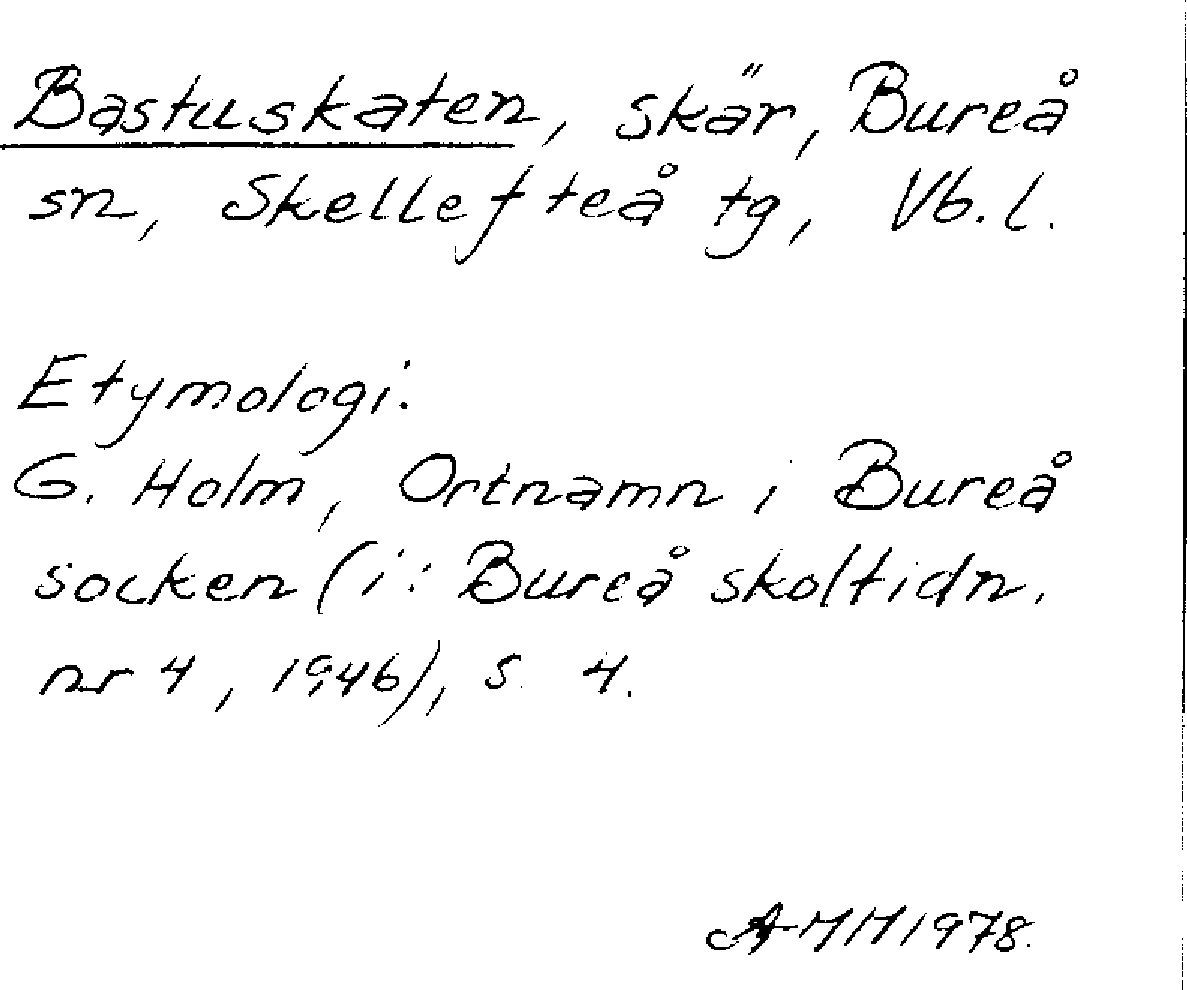 Bastuskaten, skär, Bureå
sn, Skellefteå tg, Vb. l.
Etymologi:
G. Holm, Ortnamn i Bureå
socken (i: Bureå skoltidn.
nr 4, 1946), s. 4.
AMH 1978.